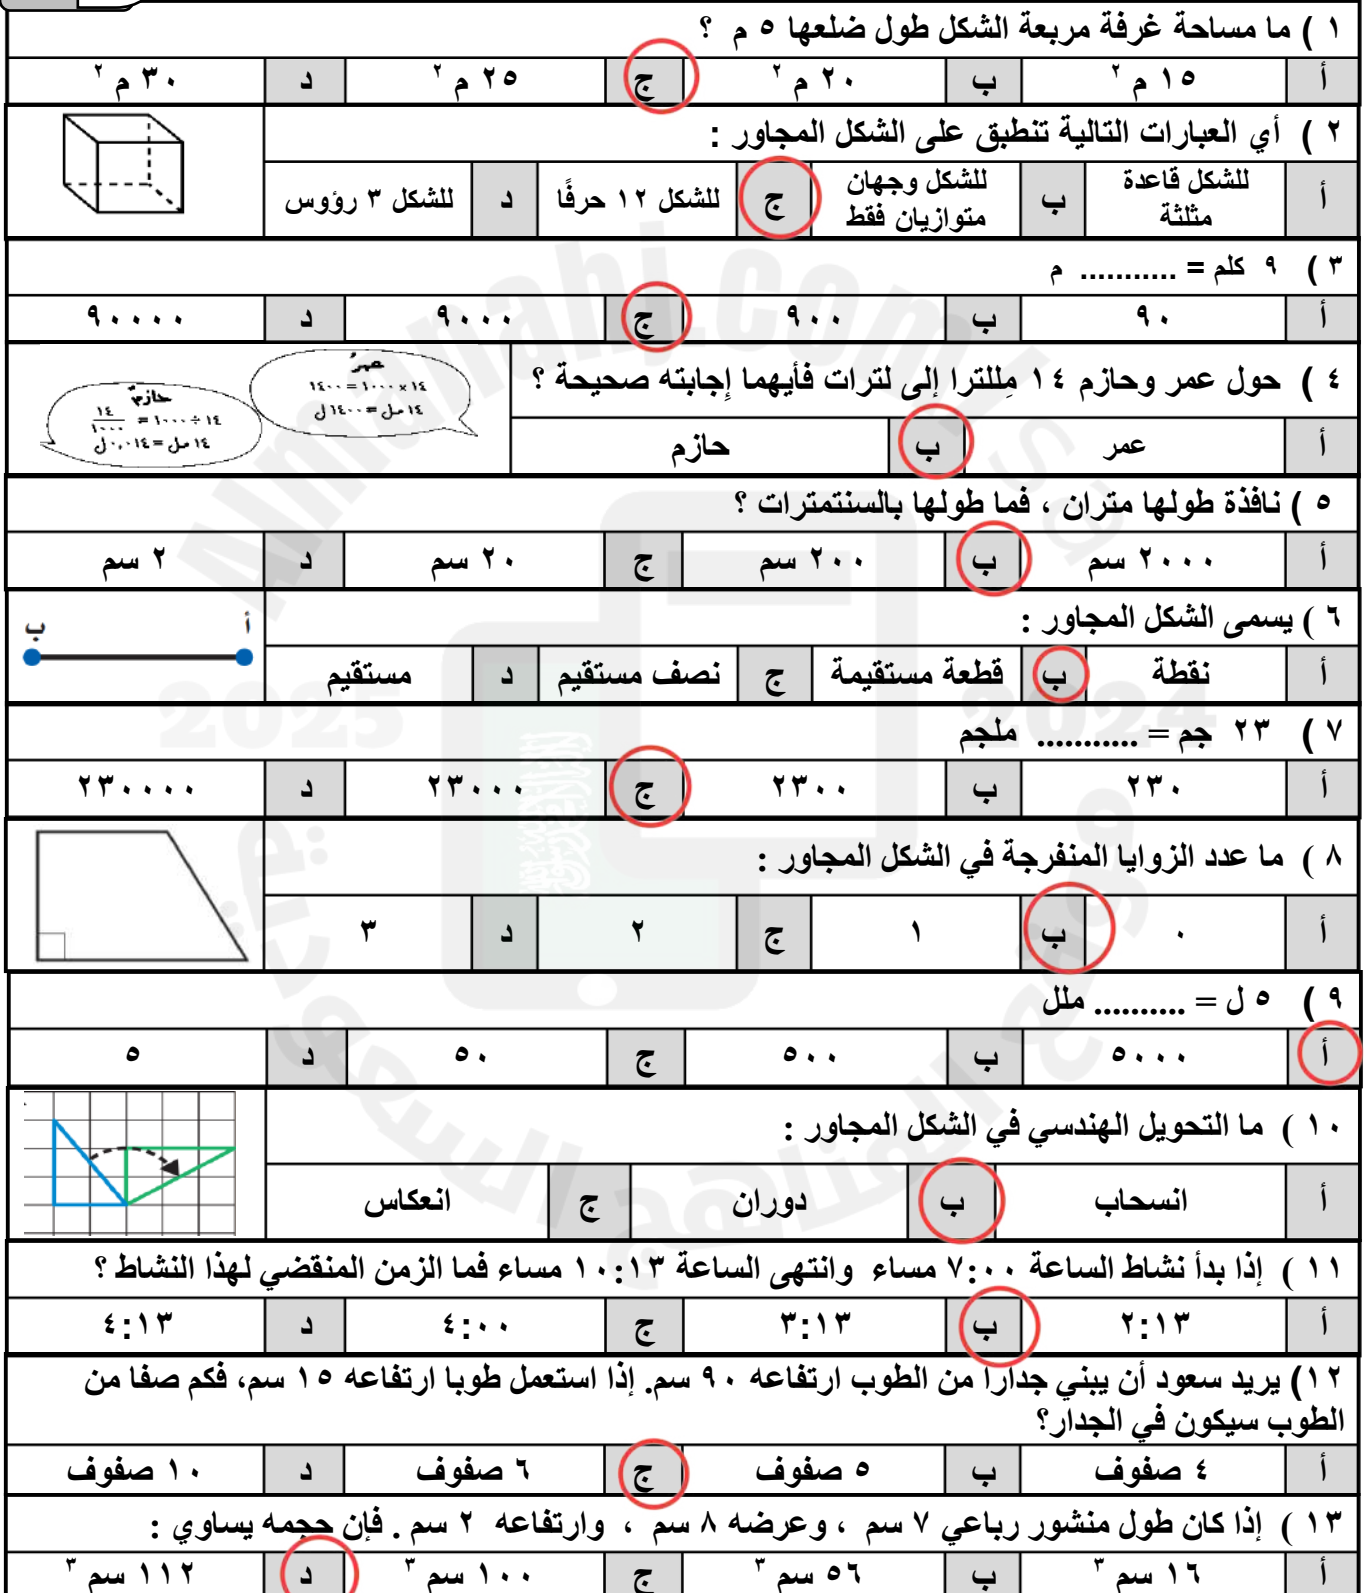 ١ ) ما مساحة غرفة مربعة الشكل طول ضلعها ٥ م ؟
أ ١٥ م ٢ ب ٢٠ م ٢ ج ٢٥ م ٢ د ٣٠ م ٢
٢ ) أي العبارات التالية تنطبق على الشكل المجاور :
أ للشكل قاعدة مثلثة ب للشكل وجهان متوازيان فقط ج للشكل ١٢ حرفًا د للشكل ٣ رؤوس
٣ ) ٩ كلم = ........... م
أ ٩٠ ب ٩٠٠ ج ٩٠٠٠ د ٩٠٠٠٠
٤ ) حول عمر وحازم ١٤ مِللترا إلى لترات فأيهما إِجابته صحيحة ؟
أ عمر ب حازم
عمرُ
١٤ × ١٠٠٠ = ١٤٠٠
١٤ مل = ١٤٠٠ ل
حازمٌ
١٤ ÷ ١٠٠٠ = ١٤/١٠٠٠
١٤ مل = ٠,٠١٤ ل
٥ ) نافذة طولها متران ، فما طولها بالسنتمترات ؟
أ ٢٠٠٠ سم ب ٢٠٠ سم ج ٢٠ سم د ٢ سم
٦ ) يسمى الشكل المجاور :
أ ب
أ نقطة ب قطعة مستقيمة ج نصف مستقيم د مستقيم
٧ ) ٢٣ جم = ........... ملجم
أ ٢٣٠ ب ٢٣٠٠ ج ٢٣٠٠٠ د ٢٣٠٠٠٠
٨ ) ما عدد الزوايا المنفرجة في الشكل المجاور :
أ ٠ ب ١ ج ٢ د ٣
٩ ) ٥ ل = .......... ملل
أ ٥٠٠٠ ب ٥٠٠ ج ٥٠ د ٥
١٠ ) ما التحويل الهندسي في الشكل المجاور :
أ انسحاب ب دوران ج انعكاس
١١ ) إذا بدأ نشاط الساعة ٧:٠٠ مساء وانتهى الساعة ١٠:١٣ مساء فما الزمن المنقضي لهذا النشاط ؟
أ ٢:١٣ ب ٣:١٣ ج ٤:٠٠ د ٤:١٣
١٢) يريد سعود أن يبني جداراً من الطوب ارتفاعه ٩٠ سم. إذا استعمل طوبا ارتفاعه ١٥ سم، فكم صفا من
الطوب سيكون في الجدار؟
أ ٤ صفوف ب ٥ صفوف ج ٦ صفوف د ١٠ صفوف
١٣ ) إذا كان طول منشور رباعي ٧ سم ، وعرضه ٨ سم ، وارتفاعه ٢ سم . فإن حجمه يساوي :
أ ١٦ سم ٣ ب ٥٦ سم ٣ ج ١٠٠ سم ٣ د ١١٢ سم ٣
Almanahj.com/sa
2025 2024
موقع المناهج السعودية